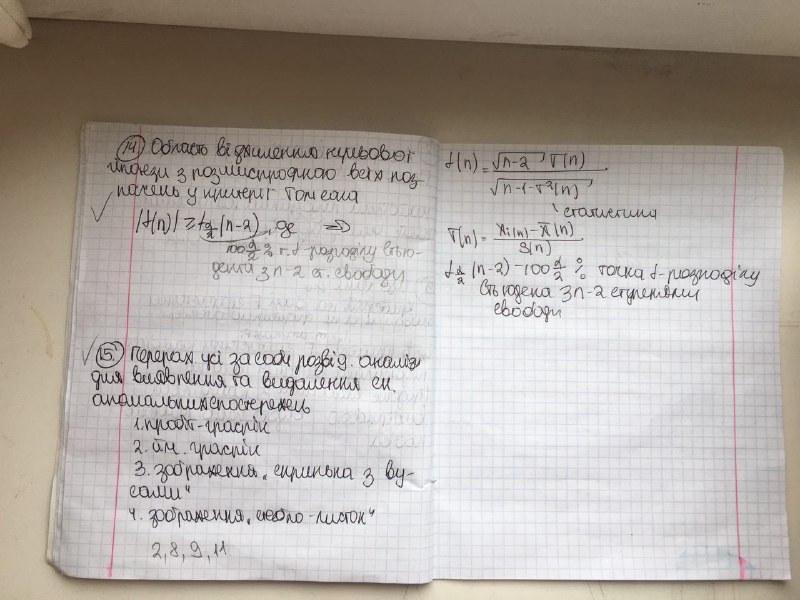 14. Область відхилення нульової
гіпотези з розшифровкою всіх поз-
начень у критерії Томсона
|t(n)| ≥ t α/2 (n-2), де ⇒
100 α/2 % т. t-розподілу Стью-
дента з n-2 ст. свободи
15. Перерах усі засоби розвід. аналізу
для виявлення та видалення ск.
аномальних спостережень
1. пробіт-графік
2. йм. графік
3. зображення „скринька з ву-
сами“
4. зображення „стебло-листок“
2, 8, 9, 11
t(n) = √n-2 T(n) / √n-1-T²(n)
статистика
T(n) = Xi(n) - X̄(n) / S(n)
t α/2 (n-2) - 100 α/2 % точка t-розподілу
Стьюдента з n-2 ступенями
свободи